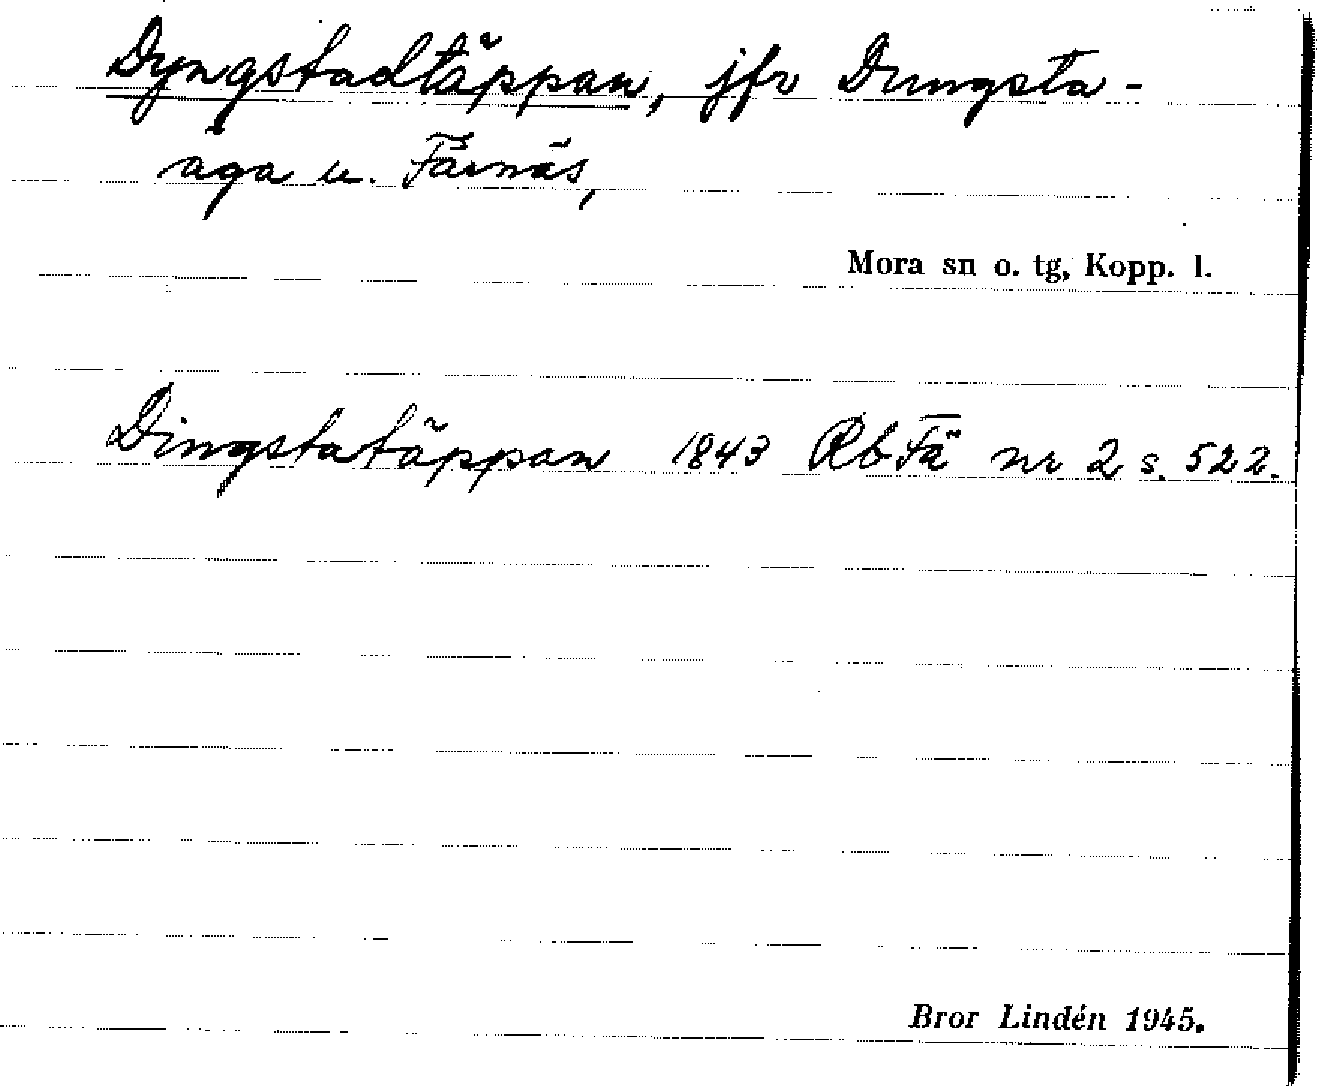 Dyngstadtäppan, jfr Dungsta-
aga u. Färnäs,
Mora sn o. tg, Kopp. l.
Dingstatäppan 1843 RbFä nr 2 s. 522.
Bror Lindén 1945.